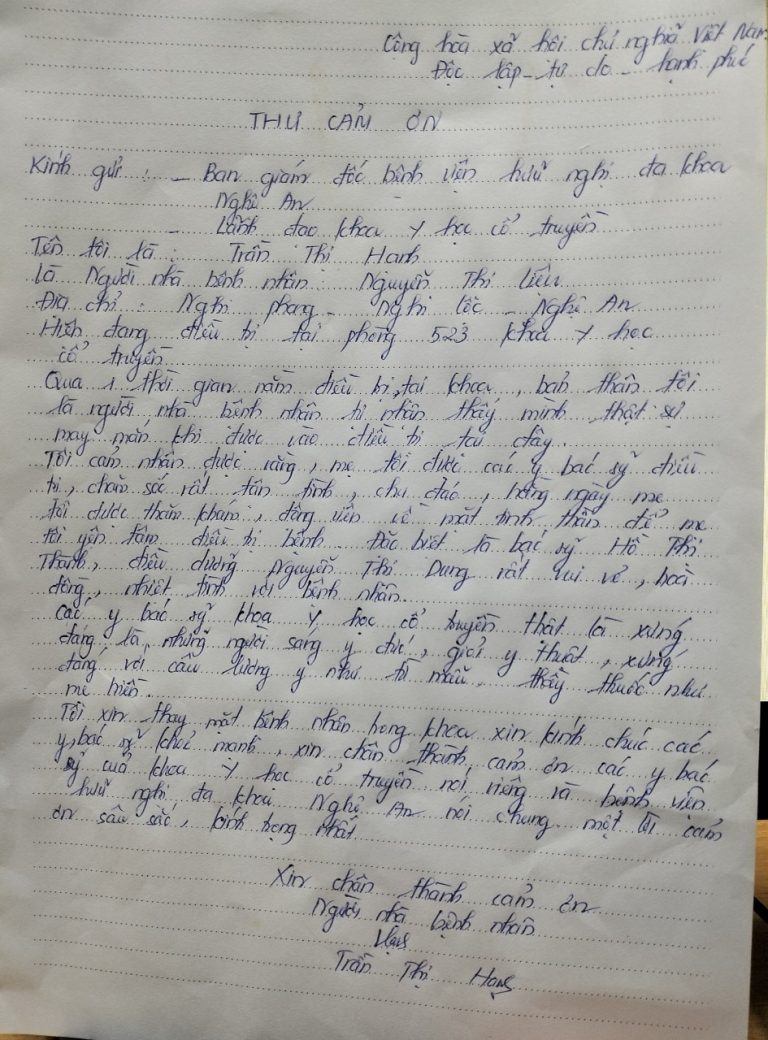 Cộng hòa xã hội chủ nghĩa Việt Nam
Độc lập - tự do - hạnh phúc
THƯ CẢM ƠN
Kính gửi : - Ban giám đốc bệnh viện hữu nghị đa khoa
Nghệ An
- Lãnh đạo khoa Y học cổ truyền
Tên tôi là : Trần Thị Hạnh
Là Người nhà bệnh nhân : Nguyễn Thị Liễu
Địa chỉ : Nghi phong - Nghi lộc - Nghệ An
Hiện đang điều trị tại phòng 523 khoa Y học
cổ truyền
Qua 1 thời gian nằm điều trị tại khoa, bản thân tôi
là người nhà bệnh nhân tự nhận thấy mình thật sự
may mắn khi được vào điều trị tại đây.
Tôi cảm nhận được rằng, mẹ tôi được các y bác sỹ điều
trị, chăm sóc rất tận tình, chu đáo, hằng ngày mẹ
tôi được thăm khám, động viên về mặt tinh thần để mẹ
tôi yên tâm điều trị bệnh. Đặc biệt là bác sỹ Hồ Thị
Thanh, điều dưỡng Nguyễn Thị Dung rất vui vẻ, hoà
đồng, nhiệt tình với bệnh nhân.
Các y bác sỹ khoa Y học cổ truyền thật là xứng
đáng là những người sáng y đức, giỏi y thuật, xứng
đáng với câu lương y như từ mẫu. thầy thuốc như
mẹ hiền.
Tôi xin thay mặt bệnh nhân trong khoa xin kính chúc các
y, bác sỹ khoẻ mạnh, xin chân thành cảm ơn các y bác
sỹ của khoa Y học cổ truyền nói riêng và bệnh viện
hữu nghị đa khoa Nghệ An nói chung một lời cảm
ơn sâu sắc, kính trọng nhất
Xin chân thành cảm ơn
Người nhà bệnh nhân
Trần Thị Hạnh